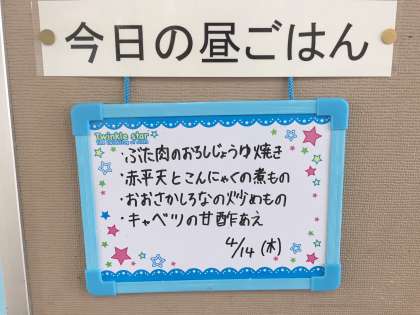 今日の昼ごはん
Twinkle star
・ぶた肉のおろしじょうゆ焼き
・赤平天とこんにゃくの煮もの
・おおさかしろなの炒めもの
・キャベツの甘酢あえ
4/14 (木)